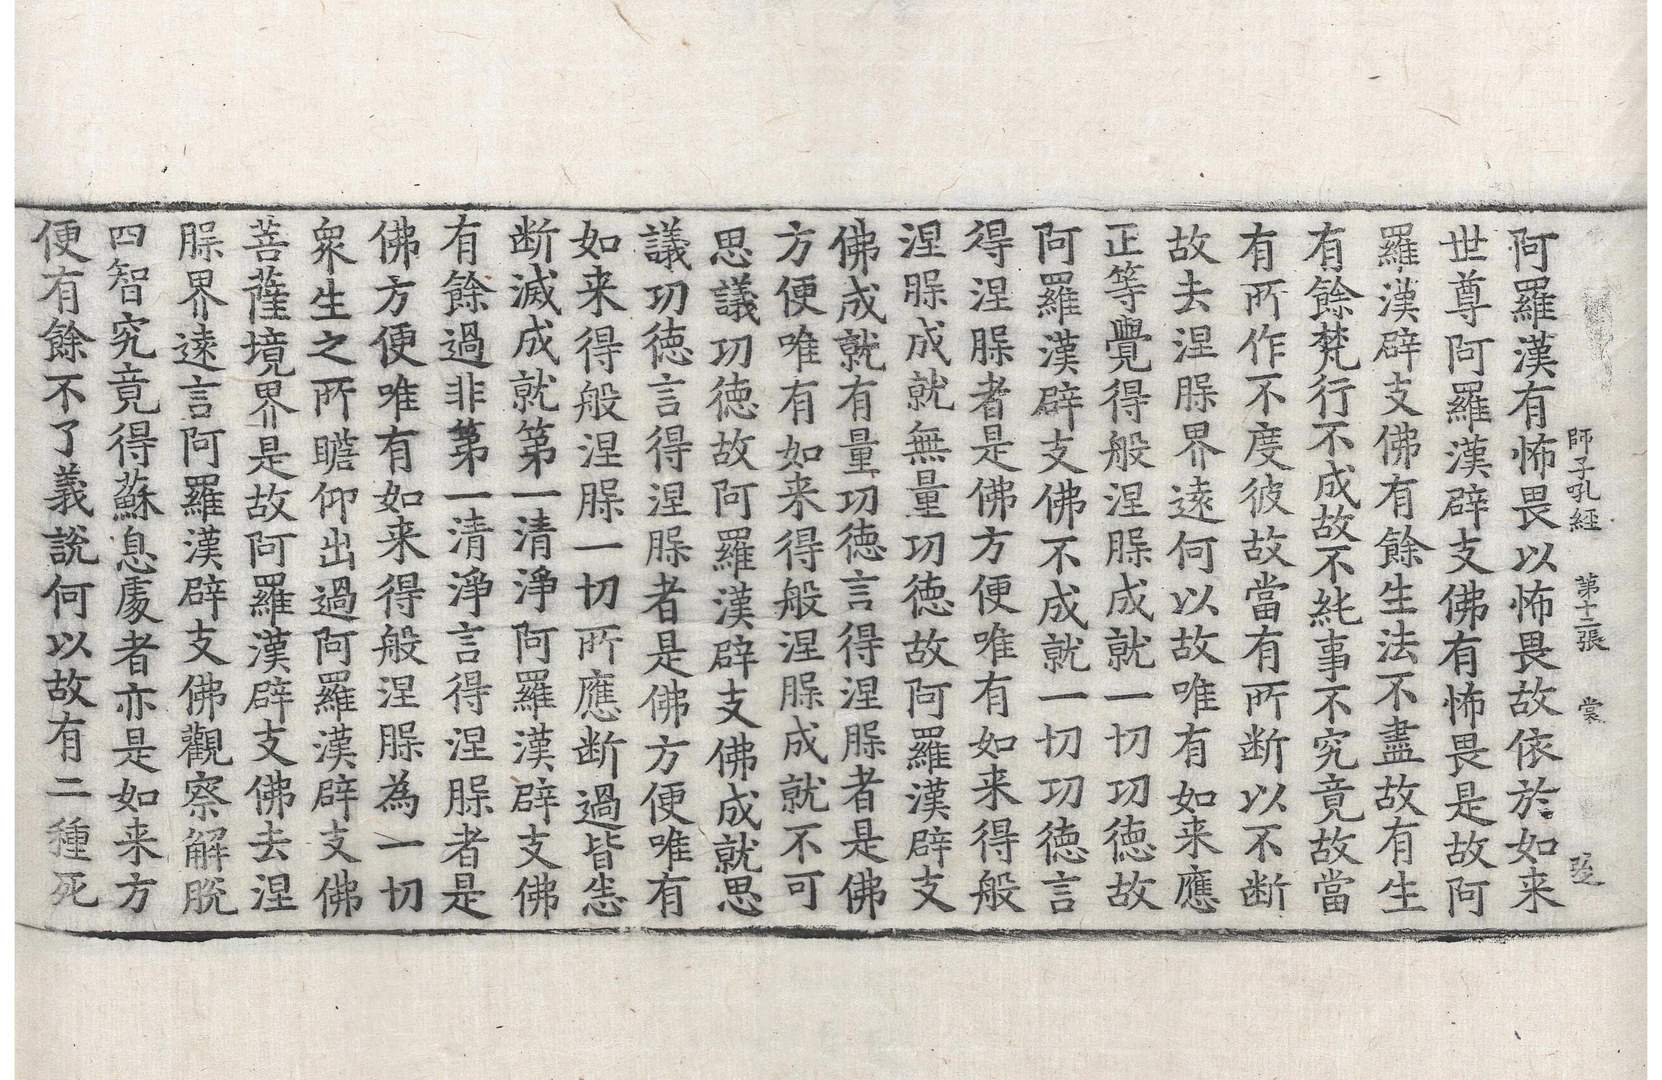 師子吼經　第十二張　棠
阿羅漢有怖畏以怖畏故依於如来
世尊阿羅漢辟支佛有怖畏是故阿
羅漢辟支佛有餘生法不盡故有生
有餘梵行不成故不純事不究竟故當
有所作不度彼故當有所断以不断
故去涅槃界遠何以故唯有如来應
正等覺得般涅槃成就一切功徳故
阿羅漢辟支佛不成就一切功徳言
得涅槃者是佛方便唯有如来得般
涅槃成就無量功徳故阿羅漢辟支
佛成就有量功徳言得涅槃者是佛
方便唯有如来得般涅槃成就不可
思議功徳故阿羅漢辟支佛成就思
議功徳言得涅槃者是佛方便唯有
如来得般涅槃一切所應断過皆悉
断滅成就第一清淨阿羅漢辟支佛
有餘過非第一清淨言得涅槃者是
佛方便唯有如来得般涅槃為一切
衆生之所瞻仰出過阿羅漢辟支佛
菩薩境界是故阿羅漢辟支佛去涅
槃界遠言阿羅漢辟支佛觀察解脫
四智究竟得蘇息處者亦是如来方
便有餘不了義説何以故有二種死